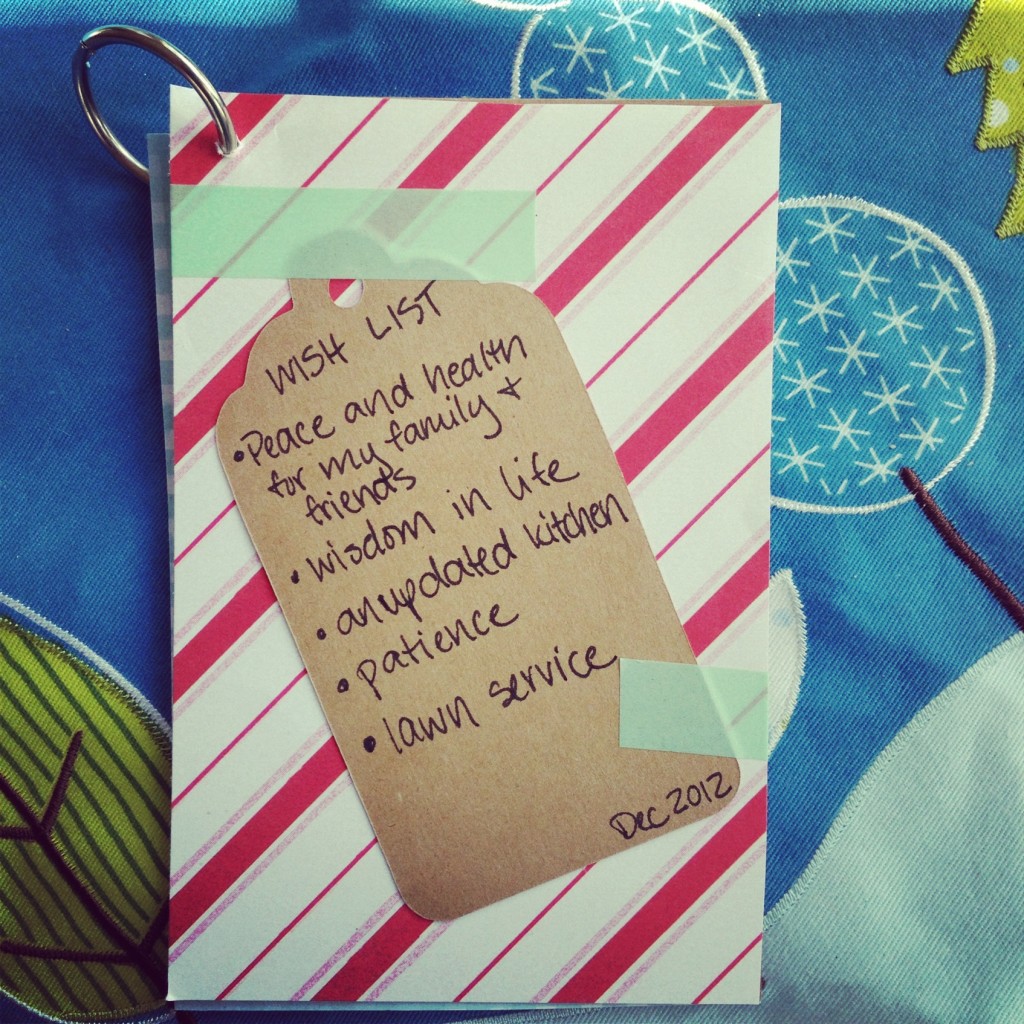 WISH LIST
• Peace and health
for my family +
friends
• wisdom in life
• an updated kitchen
• patience
• lawn service
Dec 2012